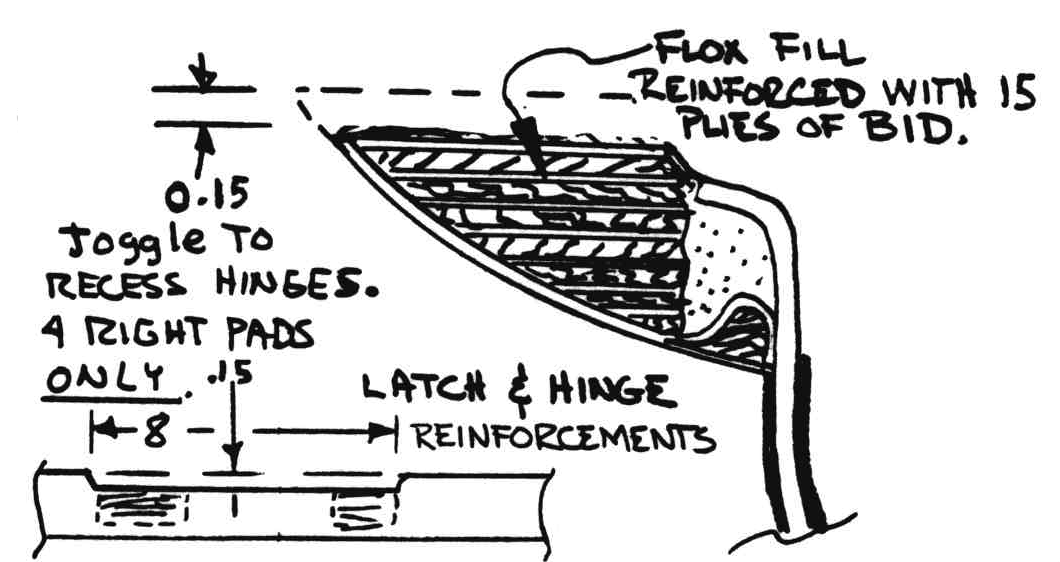 FLOX FILL
REINFORCED WITH 15
PLIES OF BID.
0.15
Joggle TO
RECESS HINGES.
4 RIGHT PADS
ONLY.
.15
LATCH & HINGE
REINFORCEMENTS
8